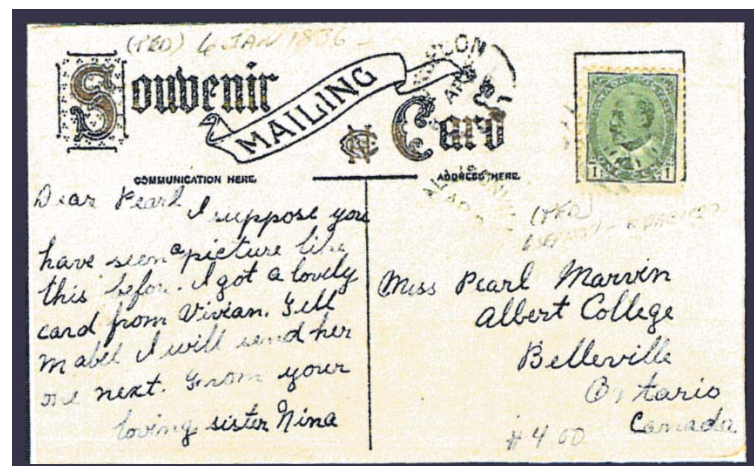 (PED) 6 JAN 1836 -
Souvenir
MAILING
Card
COMMUNICATION HERE.
ADDRESS HERE.
1 1
(PED)
Dear Pearl I suppose you
have seen a picture like
this before. I got a lovely
card from Vivian. Tell
Mabel I will send her
one next. From your
loving sister Nina
Miss Pearl Marvin
Albert College
Belleville
Ontario
Canada
#4 00